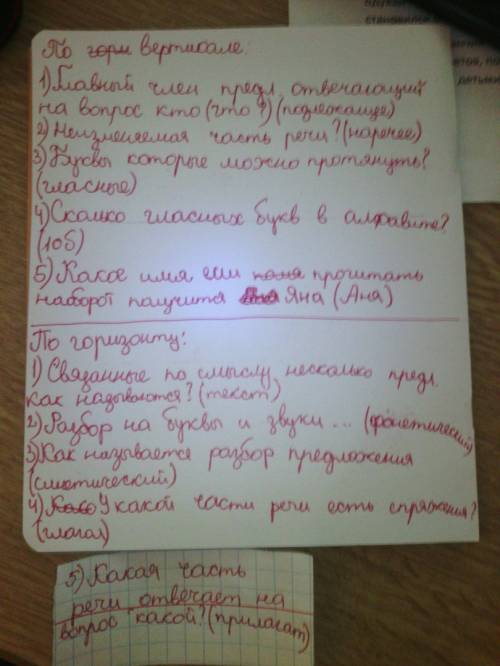 По гори вертикале:
1) Главный член предл. отвечающий
на вопрос кто (что?) (подлежащие)
2) Неизменяемая часть речи? (наречее)
3) Буквы которые можно протянуть?
(гласные)
4) Сколко гласных букв в алфавите?
(10б)
5) Какое имя если прочитать
наоборот получится Яна (Аня)
По горизонту:
1) Связанные по смыслу несколько предл.
как называются? (текст)
2) Разбор на буквы и звуки ... (фонетический)
3) Как называется разбор предложения
(синтотический)
4) У какой части речи есть спряжения?
(глагол)
5) Какая часть
речи отвечает на
вопрос какой? (прилагат)
становился